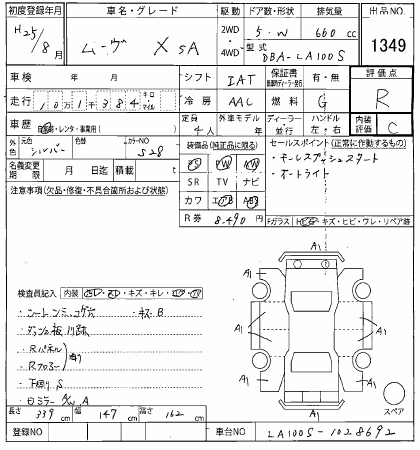 初度登録年月 車名・グレード 駆動 ドア数・形状 排気量 出品NO.
H25/8月 ムーヴ X SA 2WD・4WD 5・W 660cc 1349
型式 DBA-LA100S
車検 年 月 シフト IAT 保証書 有・無 評価点
走行 10万1千384 キロ マイル 冷房 AAC 燃料 G R
車歴 自家用・レンタ・事業用( ) 定員 4人 外車モデル 年 ディーラー・並行 ハンドル 左・右 内装評価 C
外色 元色 シルバー 色替 カラーNO S28 装備品(純正品に限る) セールスポイント(正常に作動するもの)
名義変更期限 月 日迄 積載 t PS PW AW ・キーレスプッシュスタート
注意事項(欠品・修復・不具合箇所および状態) SR TV ナビ ・オートライト
カワ エアB ABS
R券 8,490円 Fガラス キズ・ヒビ・ワレ・リペア跡
A1
A1
A1 A1
A1 A1
A1
検査員記入 内装 キズ・キレ
・シートシミ、コゲ穴 ・キズB
・ダッシュ板
・Rパネル
・Rフロアー
・下回りS
・ミラー A
長さ 339cm 幅 147cm 高さ 162cm スペア
登録NO 車台NO LA100S-1028692